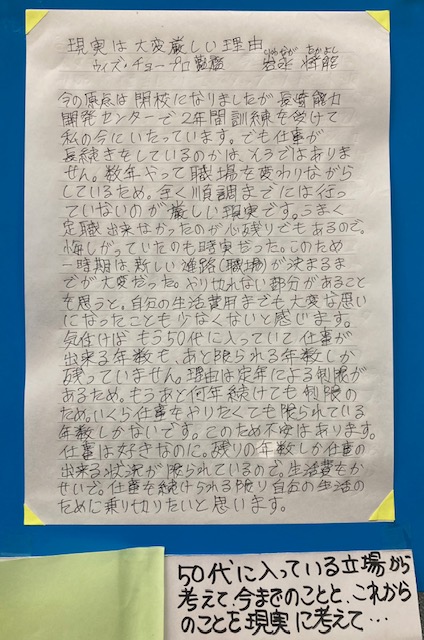 現実は大変厳しい理由
ウィズ・チョープロ 岩永
今の原点は閉校になりましたが長崎能力
開発センターで2年間訓練を受けて
私の今にいたっています。でも仕事が
長続きをしているのかは、そうではありま
せん。数年やって職場を変わりながら
しているため。全く順調までには行っ
ていないのが厳しい現実です。うまく
定職出来なかったのが心残りでもあるので。
悔しがっていたのも時実だった。このため
一時期は新しい進路(職場)が決まるま
でが大変だった。やり切れない部分があること
を思うと。自分の生活費用までも大変な思い
になったことも少なくないと感じます。
気付けばもう50代に入っていて仕事が
出来る年数も、あと限られる年数しか
残っていません。理由は定年による制限が
あるため。もうあと何年続けても制限の
ため。いくら仕事をやりたくても限られている
年数しかないです。このため不安はあります。
仕事は好きなのに。残りの年数しか仕事の
出来る状況が限られているので。生活費をか
せいで。仕事を続けられる限り自分の生活の
ために乗り切りたいと思います。
50代に入っている立場から
考えて、今までのことと、これから
のことを現実に考えて…